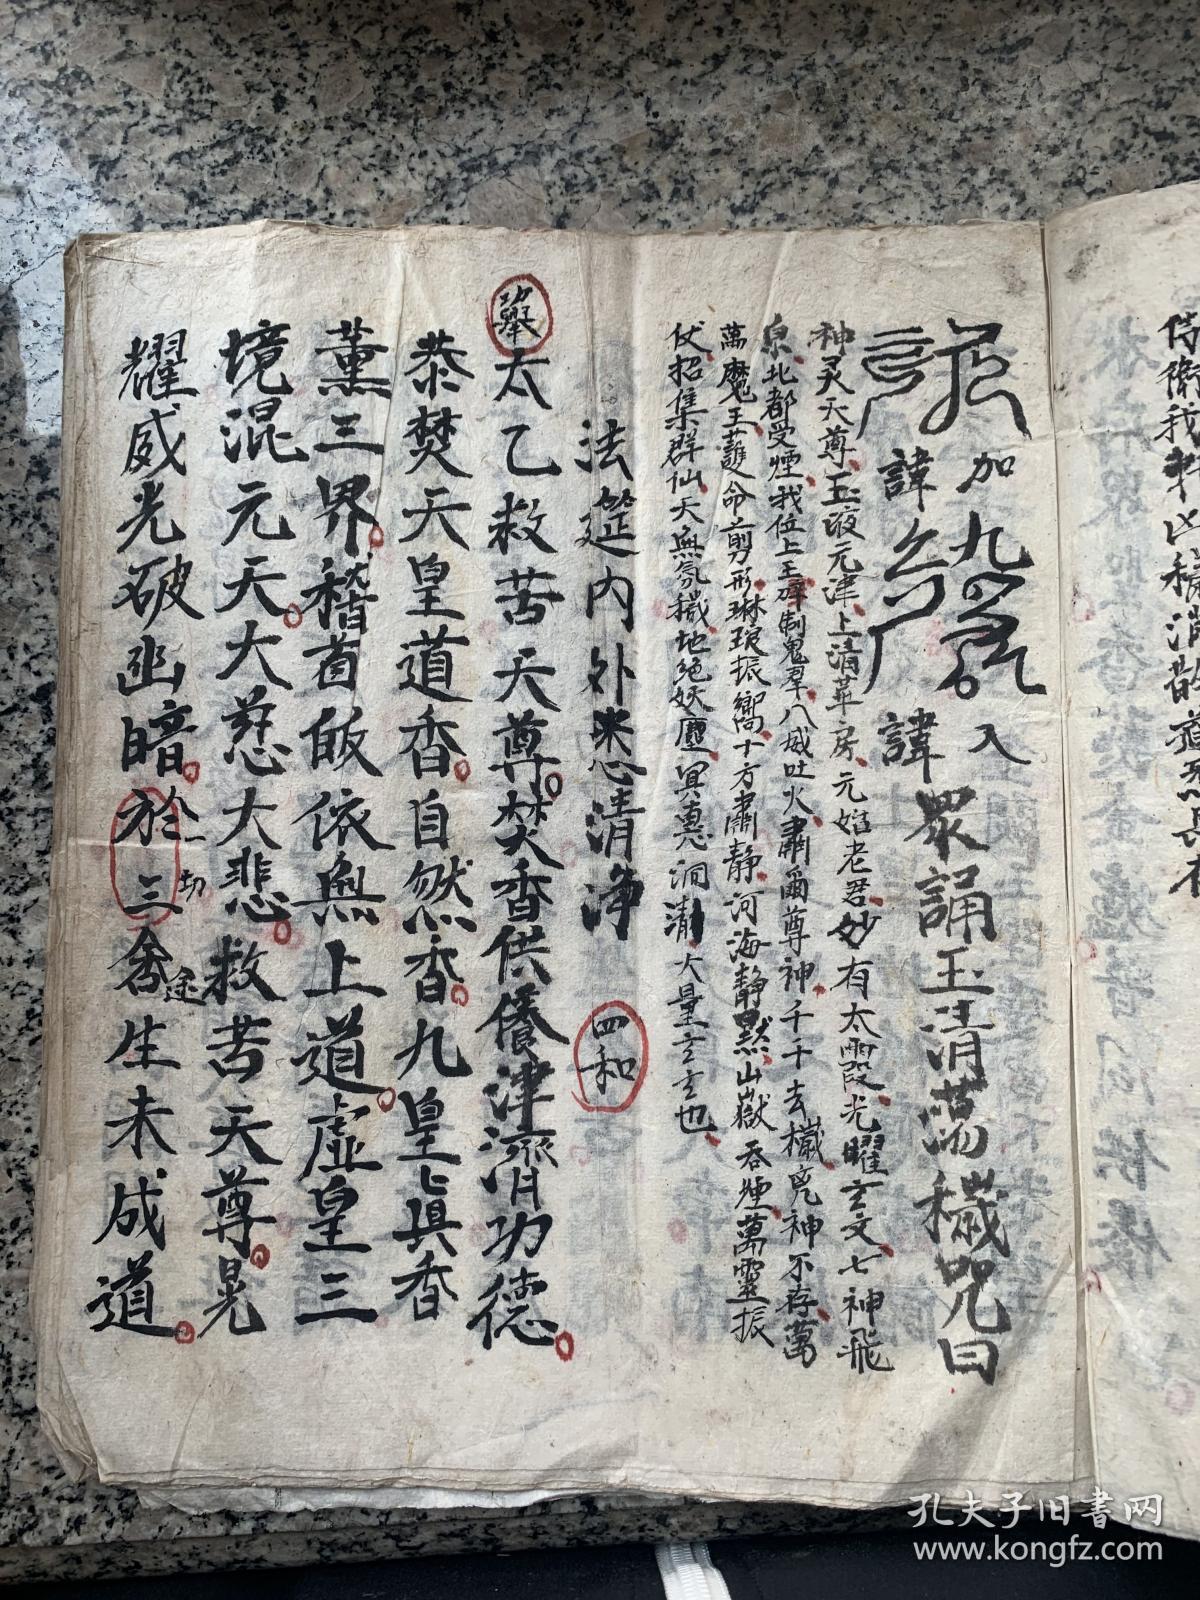 侍衛我軒凶穢消散道炁長存
加
諱
入
諱
眾誦玉清蕩穢咒曰
神灵天尊玉液元津上清革房元始老君妙有太霞光曜玄文七神飛
泉北都受煙我位上王碎制鬼群八威吐火肅爾尊神千千去穢鬼神不存萬
萬魔王護命剪形琳琅振嚮十方肅静河海静默山嶽吞煙萬靈振
伏招集群仙天無氛穢地绝妖塵冥惠洞澈大量玄玄也
法筵内外悉清浄
四和
舉
太乙救苦天尊焚香供養津濟功德
恭焚天皇道香自然香九皇七真香
薰三界稽首皈依無上道虛皇三
境混元天大慈大悲救苦天尊晃
耀威光破幽暗於一切三途含生未成道
孔夫子旧书网
www.kongfz.com